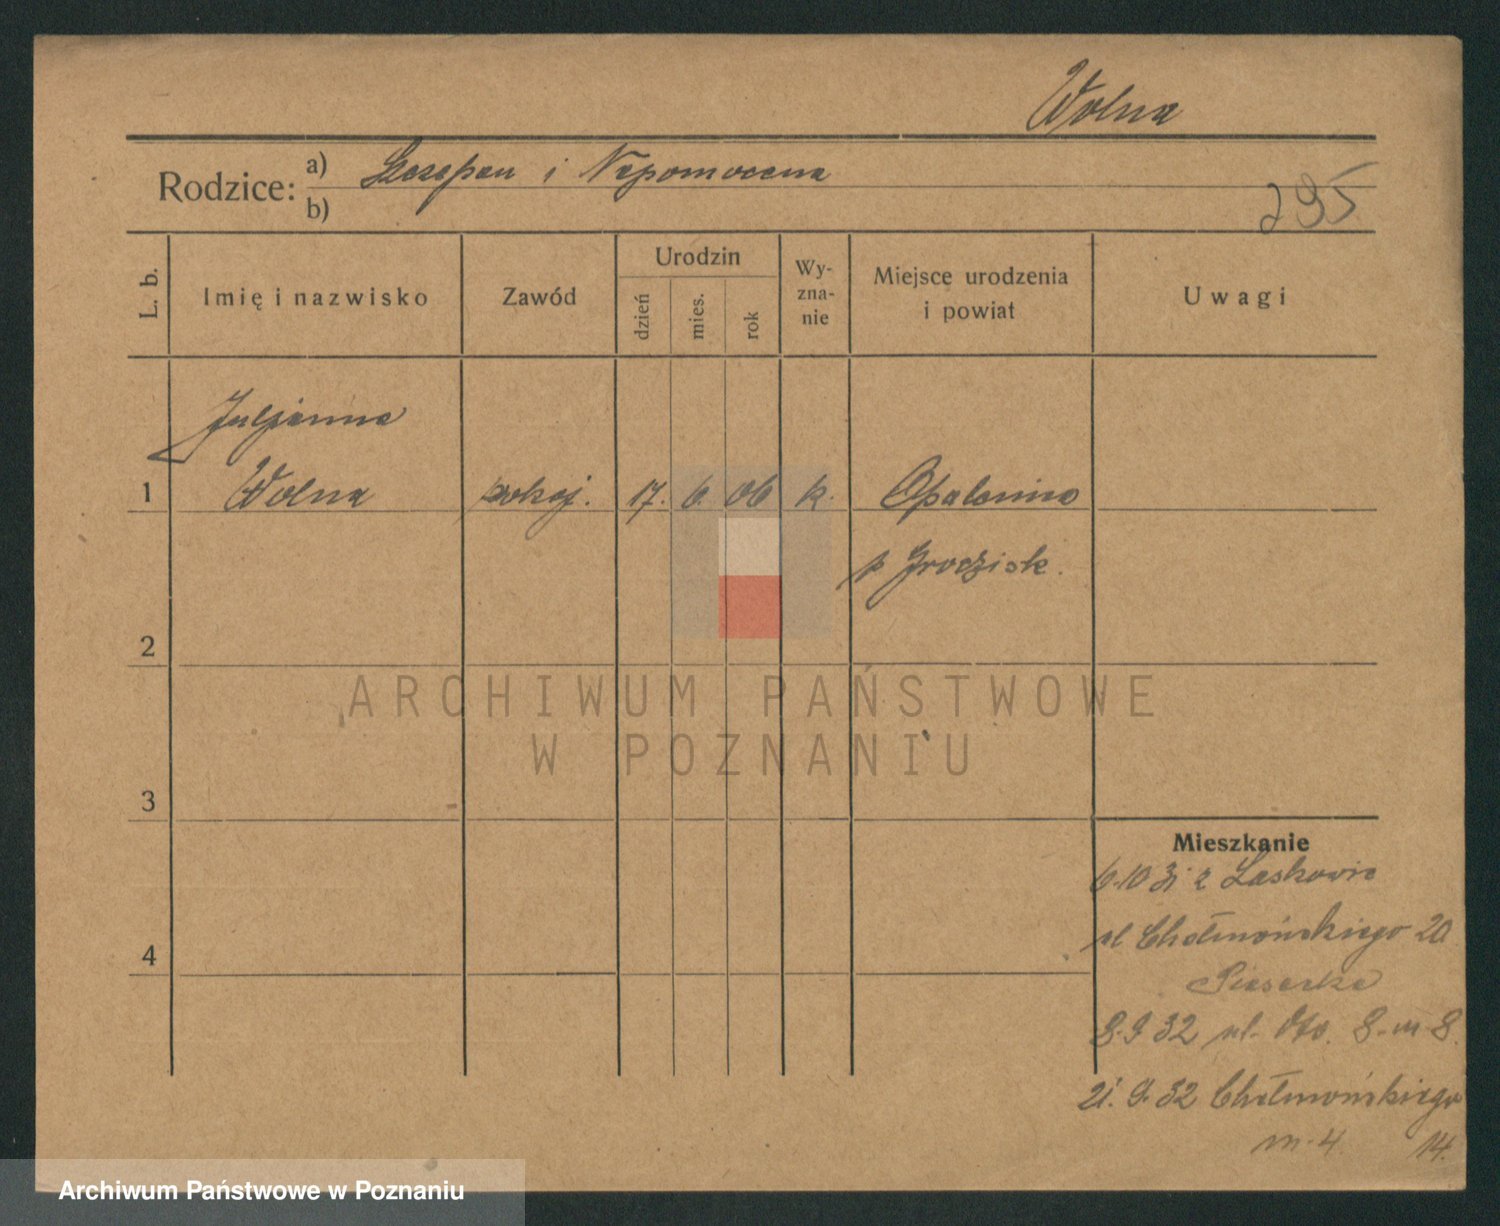 Wolna
Rodzice: a) Szczepan i Nepomocena
b)
295
L. b.
Imię i nazwisko
Zawód
Urodzin
dzień
mies.
rok
Wy-
zna-
nie
Miejsce urodzenia
i powiat
Uwagi
Juljanna
1 Wolna pokoj. 17. 6. 06 k. Opalenica
p Grodzisk.
2
ARCHIWUM PAŃSTWOWE
W POZNANIU
3
Mieszkanie
6.10 31 z Laskowic
ul Chełmońskiego 20
4
Piasecka
8.9 32 ul. 8. m 8.
21. 9. 32 Chełmońskiego
m. 4. 14.
Archiwum Państwowe w Poznaniu